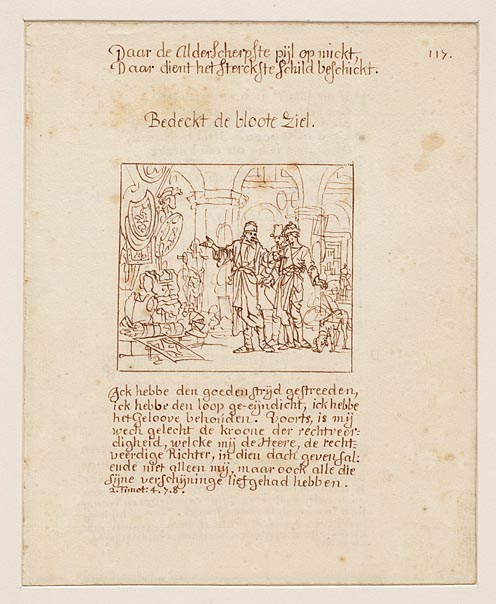 Daar de Alderscherpste pijl op mickt,
117.
Daar dient het Sterckste Schild beschickt.
Bedeckt de bloote Ziel.
Ick hebbe den goeden strijd gestreeden,
ick hebbe den loop ge-eijndicht, ick hebbe
het Geloove behouden. Voorts, is mij
wech gelecht de kroone der rechtveer-
digheid, welcke mij de Heere, de recht-
veerdige Richter, in dien dach geven sal:
ende niet alleen mij, maar oock alle die
sijne verschijninge lief gehad hebben.
2. Timot: 4. 7. 8.